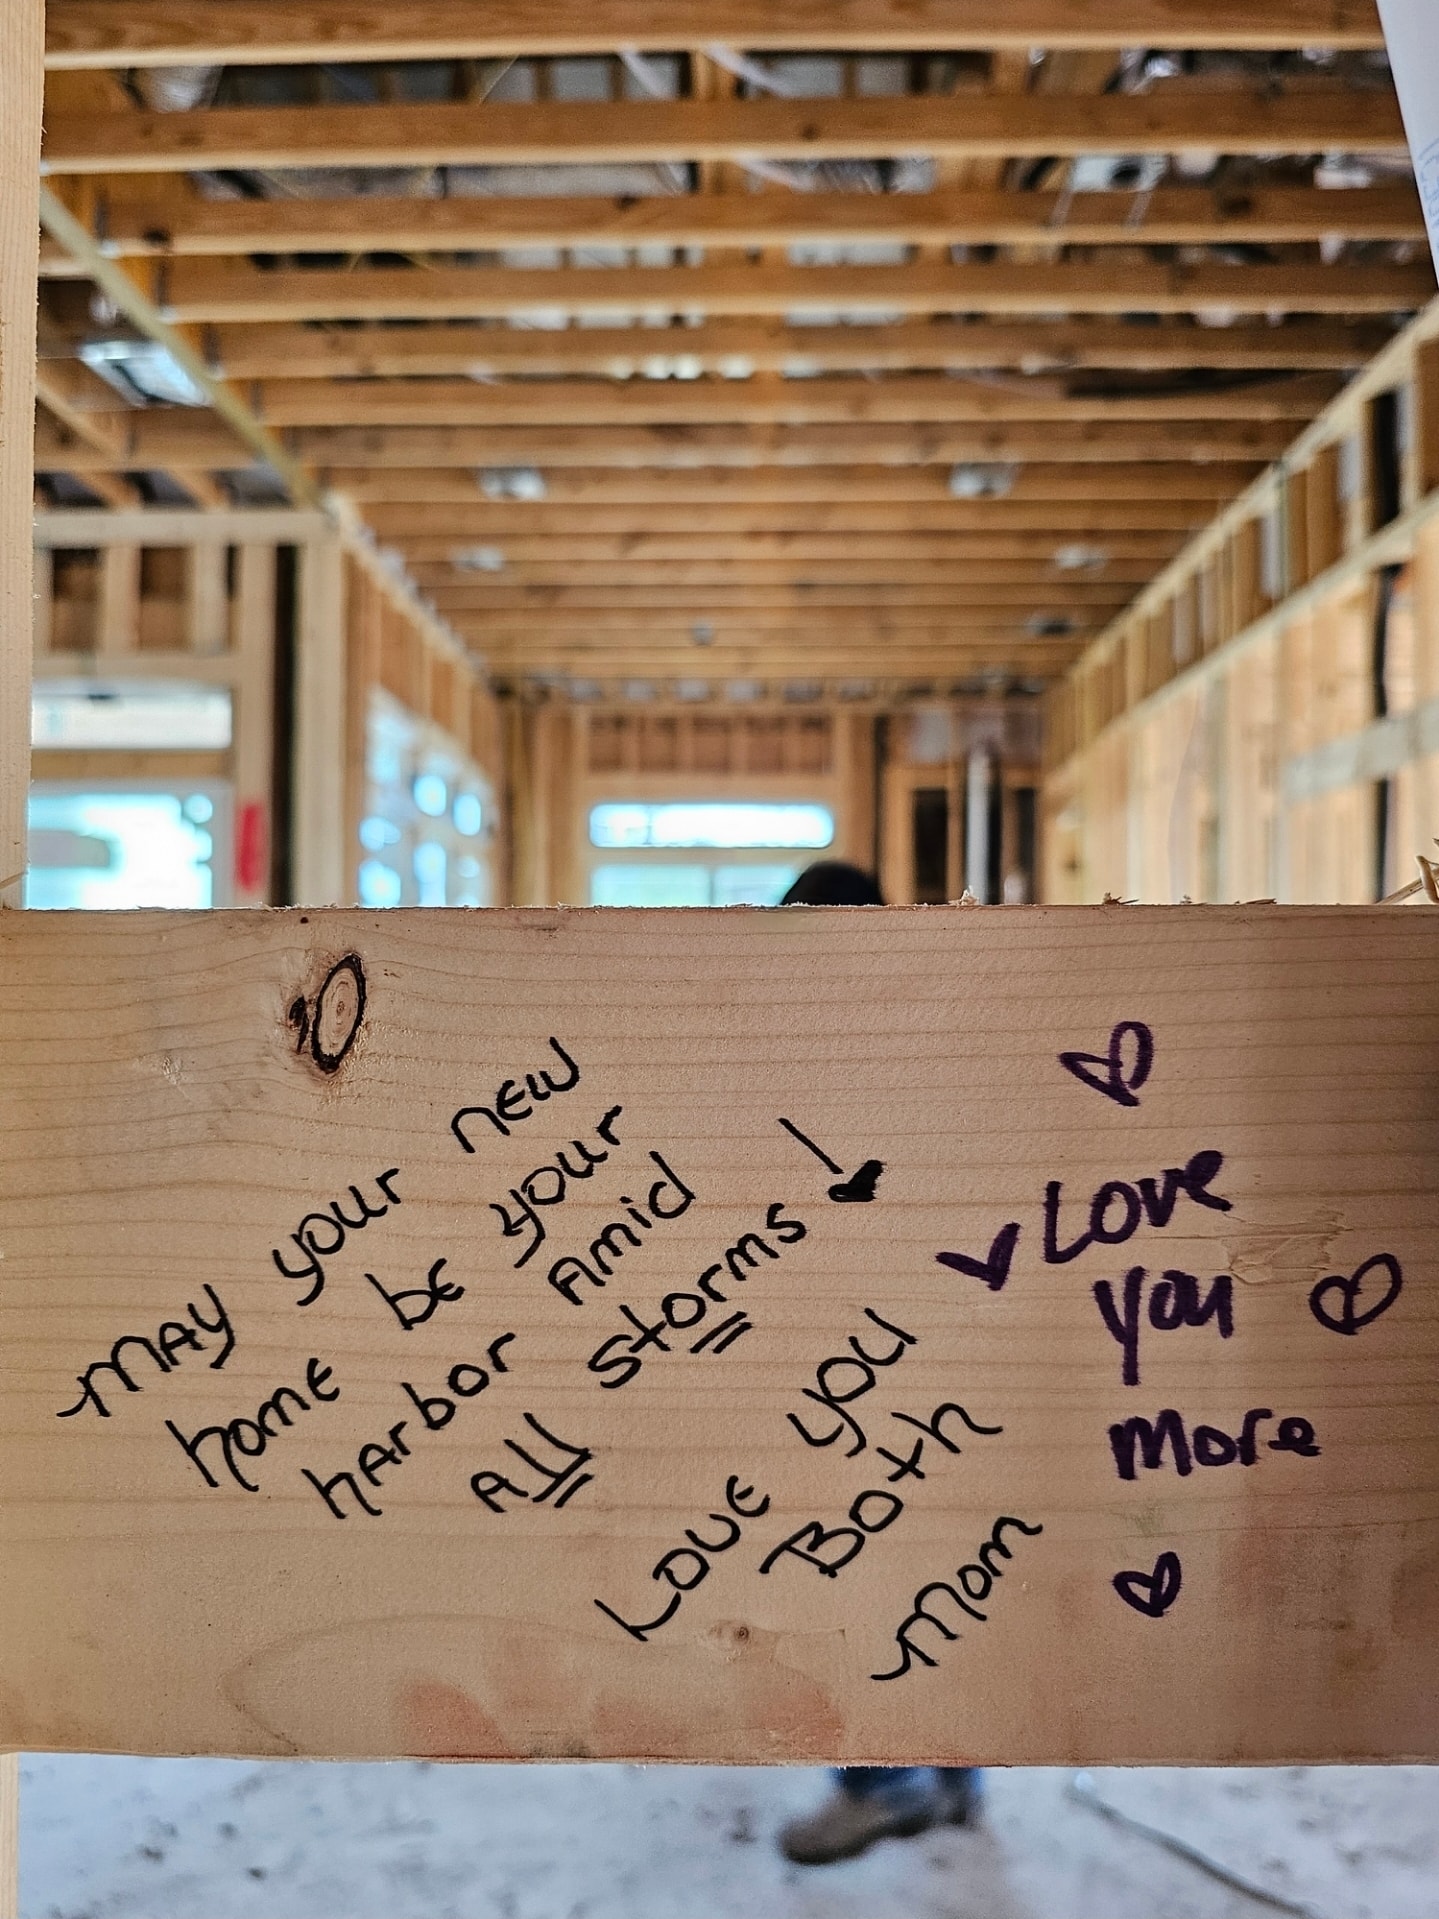 MAY your new
home be your
harbor Amid
All storms!
Love you
Both
Mom
Love
you
more